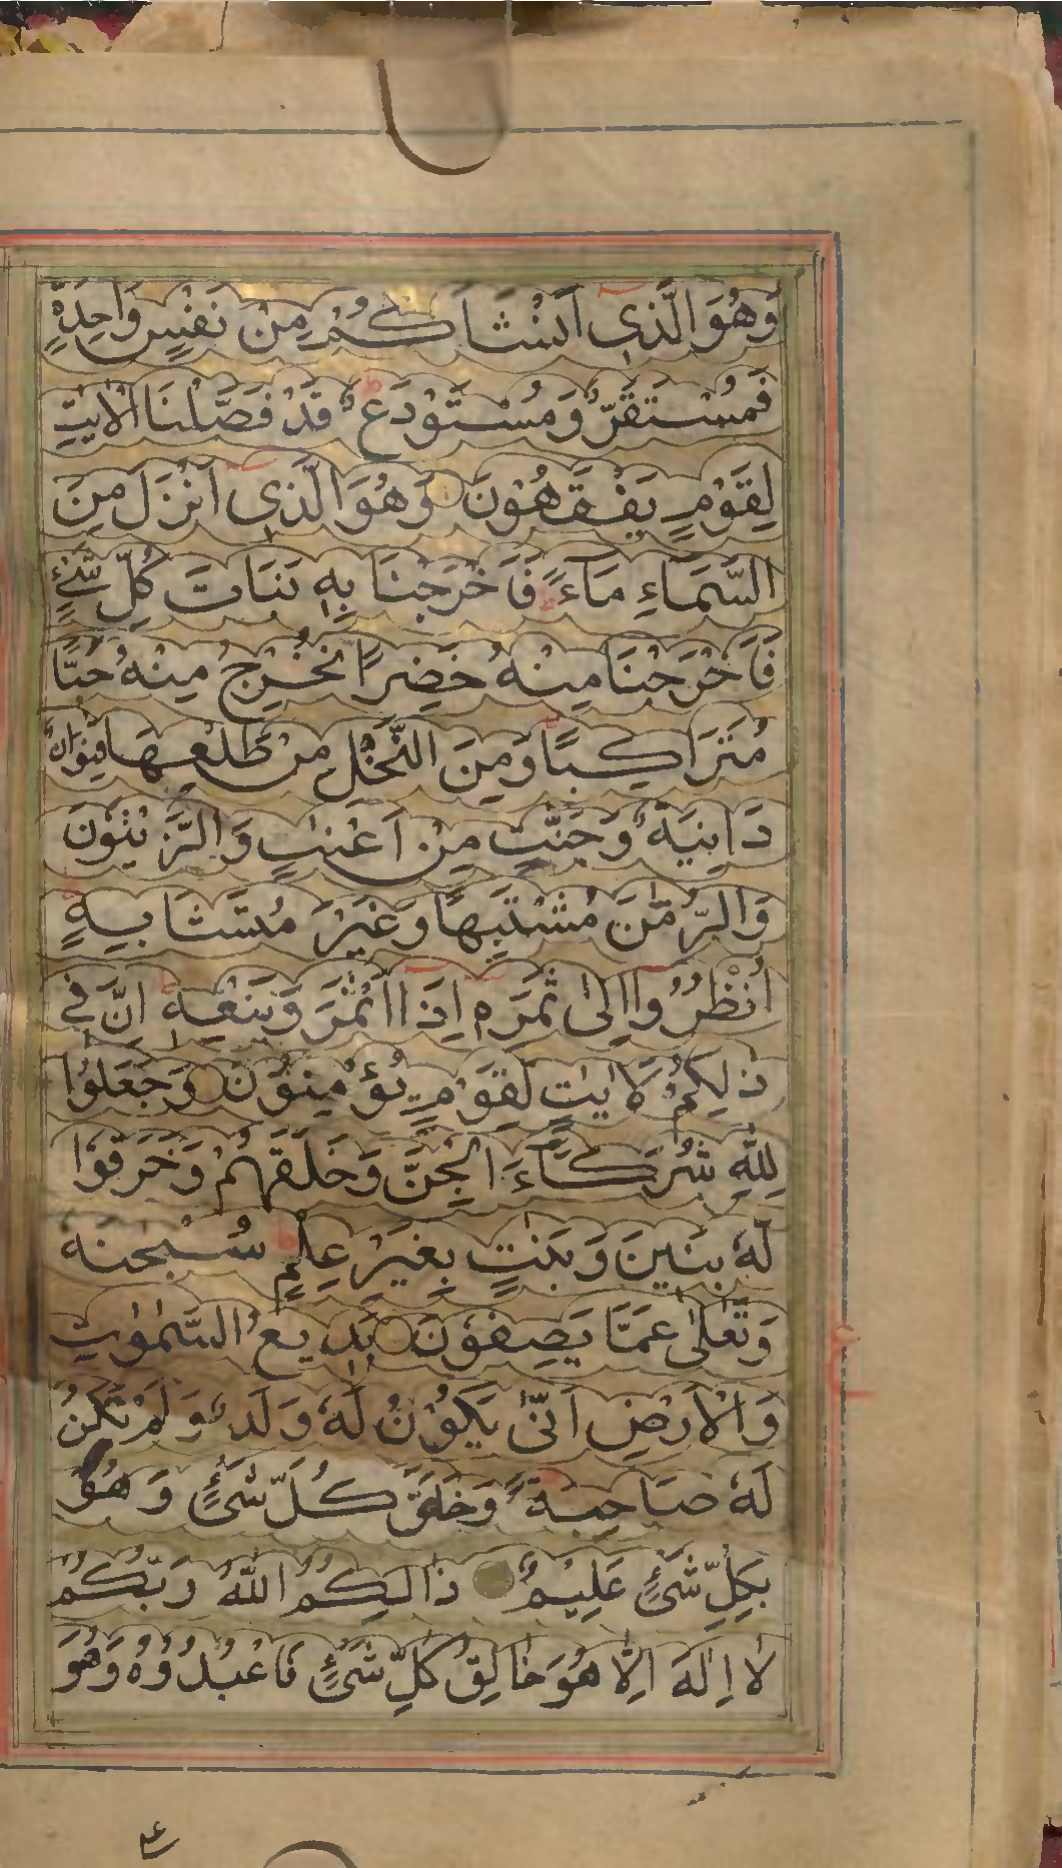 وَهُوَ الَّذِي اَنْشَاَكُمْ مِنْ نَفْسٍ وَاحِدَةٍ
فَمُسْتَقَرٌّ وَمُسْتَوْدَعٌ ط قَدْ فَصَّلْنَا الْاٰيٰتِ
لِقَوْمٍ يَفْقَهُوْنَ وَهُوَ الَّذِي اَنْزَلَ مِنَ
السَّمَاءِ مَاءً فَاَخْرَجْنَا بِهٖ نَبَاتَ كُلِّ شَيْءٍ
فَاَخْرَجْنَا مِنْهُ خَضِرًا نُخْرِجُ مِنْهُ حَبًّا
مُتَرَاكِبًا وَمِنَ النَّخْلِ مِنْ طَلْعِهَا قِنْوَانٌ
دَانِيَةٌ وَجَنّٰتٍ مِنْ اَعْنَابٍ وَالزَّيْتُوْنَ
وَالرُّمَّانَ مُشْتَبِهًا وَغَيْرَ مُتَشَابِهٍ
اُنْظُرُوا اِلٰى ثَمَرِهٖ اِذَا اَثْمَرَ وَيَنْعِهٖ اِنَّ فِي
ذٰلِكُمْ لَاٰيٰتٍ لِقَوْمٍ يُؤْمِنُوْنَ وَجَعَلُوْا
لِلّٰهِ شُرَكَآءَ الْجِنَّ وَخَلَقَهُمْ وَخَرَقُوْا
لَهٗ بَنِينَ وَبَنٰتٍ بِغَيْرِ عِلْمٍ ط سُبْحٰنَهٗ
وَتَعٰلٰى عَمَّا يَصِفُوْنَ بَدِيعُ السَّمٰوٰتِ
وَالْاَرْضِ اَنّٰى يَكُوْنُ لَهٗ وَلَدٌ وَلَمْ تَكُنْ
لَهٗ صَاحِبَةٌ وَخَلَقَ كُلَّ شَيْءٍ وَهُوَ
بِكُلِّ شَيْءٍ عَلِيْمٌ ذٰالِكُمُ اللّٰهُ رَبُّكُمْ
لَا اِلٰهَ اِلَّا هُوَ خَالِقُ كُلِّ شَيْءٍ فَاعْبُدُوْهُ وَهُوَ